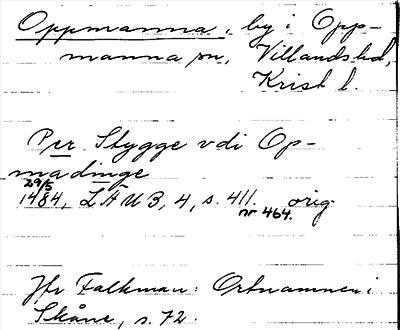 Oppmanna, by i Opp-
manna sn, Villands hd,
Krist l.
Per Stygge vdi Op-
madinge
29/5
1484, LÄUB, 4, s. 411. orig.
nr 464.
Jfr Falkman: Ortnamnen i
Skåne, s. 72.